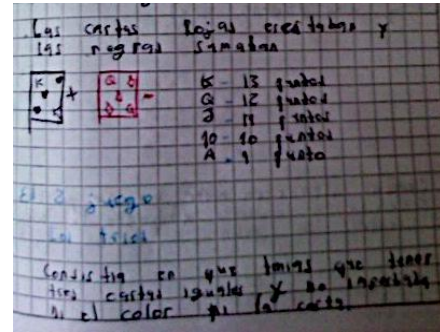 Las cartas Rojas restaban y
las negras sumaban
K + Q -
K - 13 puntos
Q - 12 puntos
J - 11 puntos
10 - 10 puntos
A - 1 punto
El 2 juego
Los
Consistia en que tenias que tener
tres cartas iguales y no importaba
ni el color ni la carta.